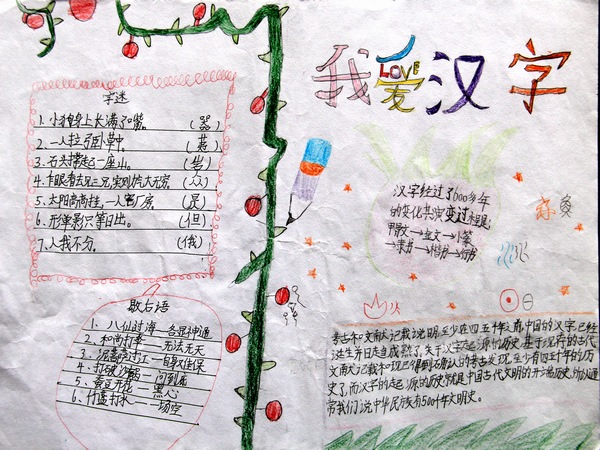 字迷
1. 小狗身上长满了嘴。(器)
2. 一人拉弓卧草中。(
3. 石头撑起一座山。(岩)
4. 乍眼看去见三兄,实则威力大无穷(众)
5. 太阳高高挂,一人
6. 形单影只等日出。(但)
7. 人我不分。(俄)
歇后语
1. 八仙过海——各显神通
2. 和尚打伞——无法无天
3. 泥菩萨过江——自身难保
4. 打破沙锅——问到底
5. 黄豆开花——
6. 竹篮打水——一场空
我爱汉字
LOVE
汉字经过了6000多年
的变化其演变过程是:
甲骨文→金文→小篆
→隶书→楷书→行书
考古和文献记载说明,至少在四五千年之前,中国的汉字已经
诞生并日走向成熟了,关于文字起源的历史,基于现存的古代
文献记载和现已得到确认的考古发现,至少有四五千年的历
史了,而文字的起源的历史就是中国古代文明的开端历史,所以通
常我们说中华民族有5000年文明史。